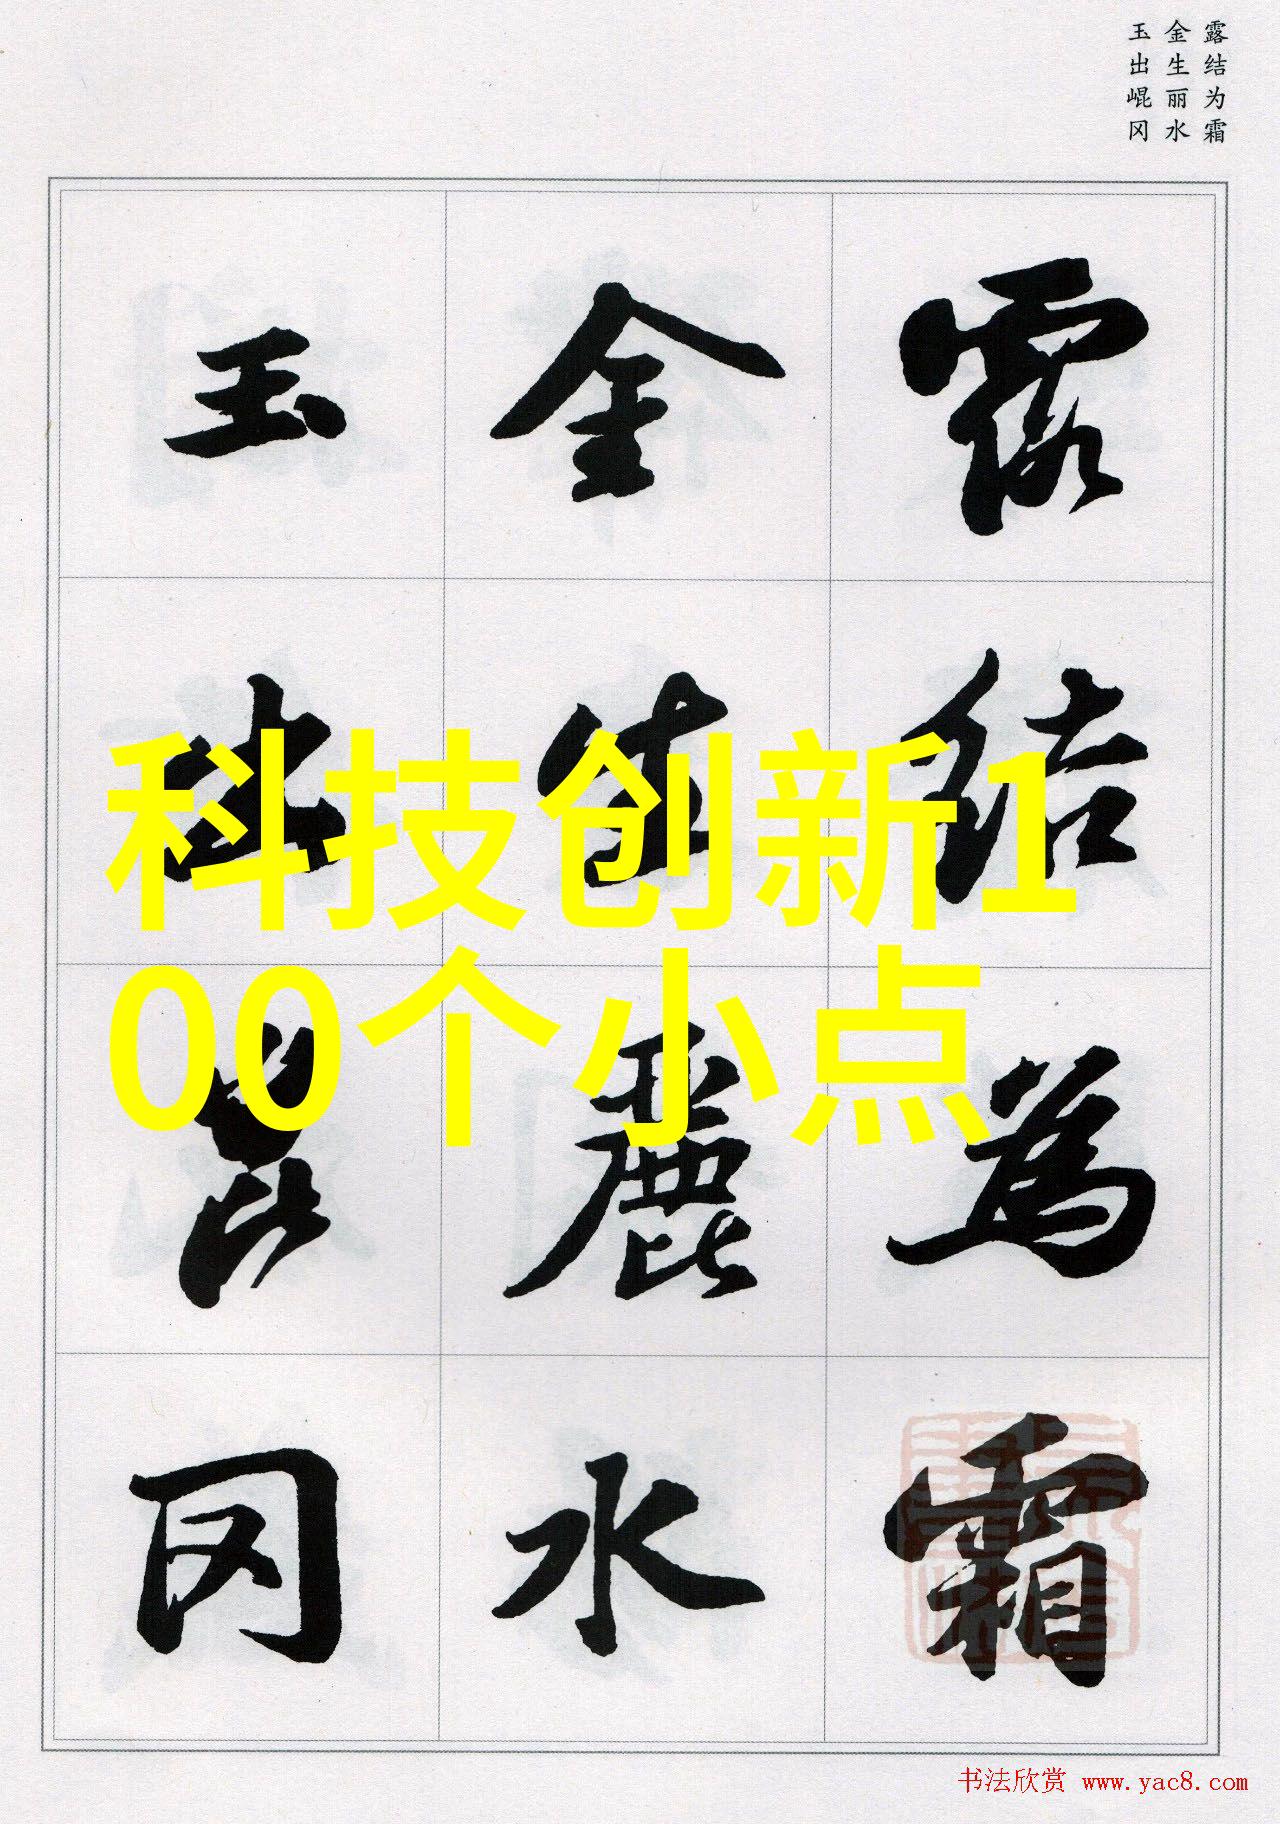 露结为霜
金生丽水
玉出崐冈
露结為霜
金生麗水
玉出崑冈
科技创新1
00个小点
书法欣赏 www.yac8.com